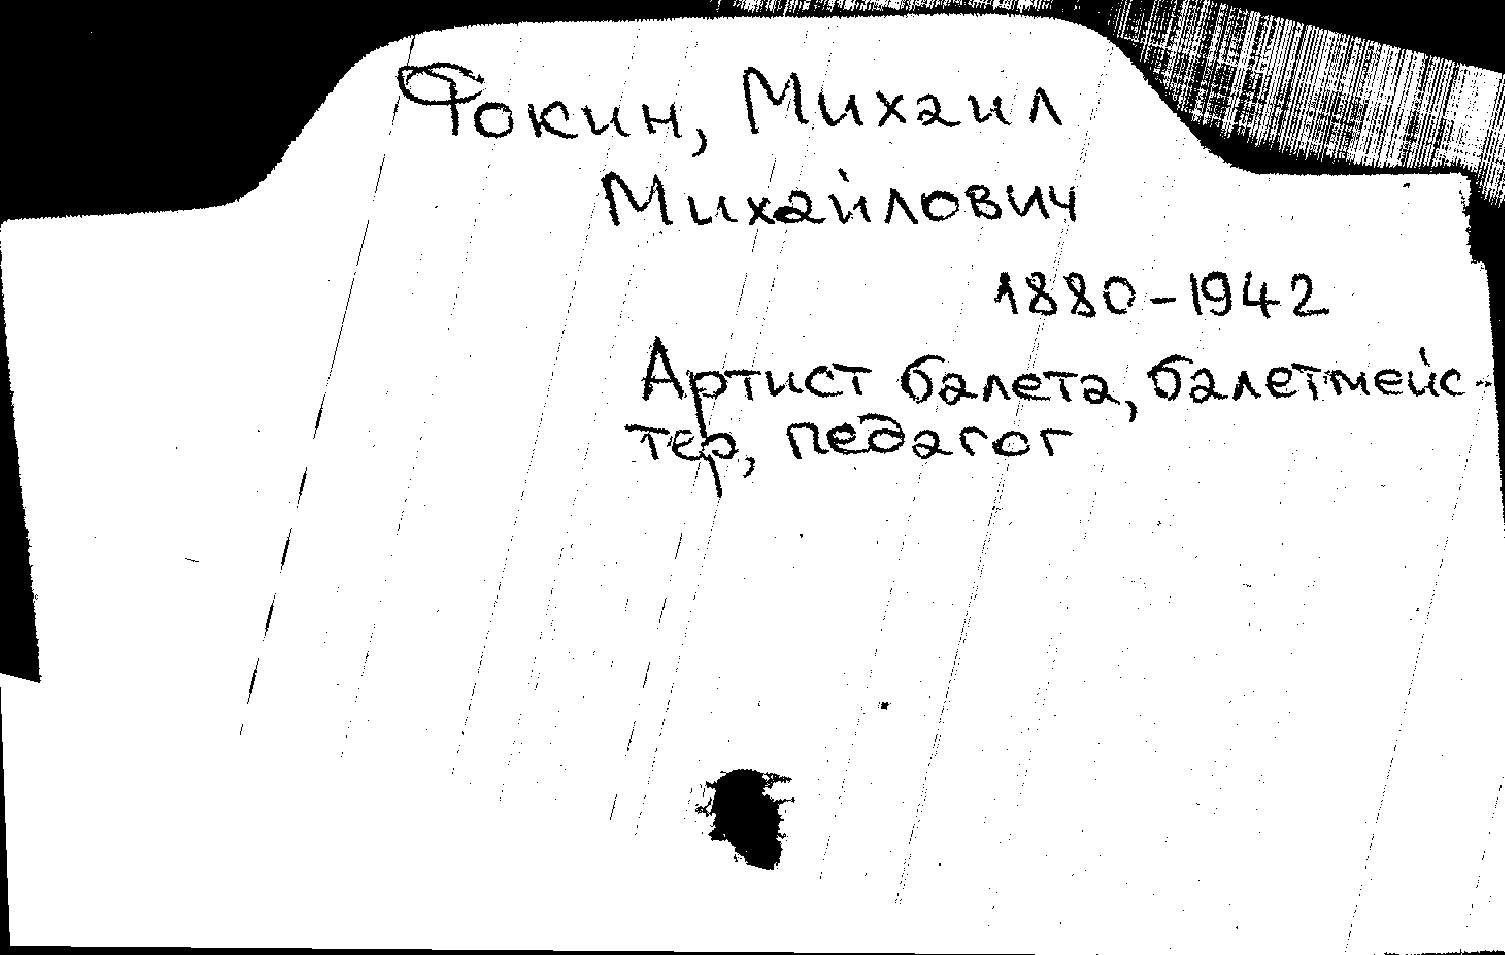 Фокин, Михаил
Михайлович
1880-1942
Артист балета, балетмейс-
тер, педагог